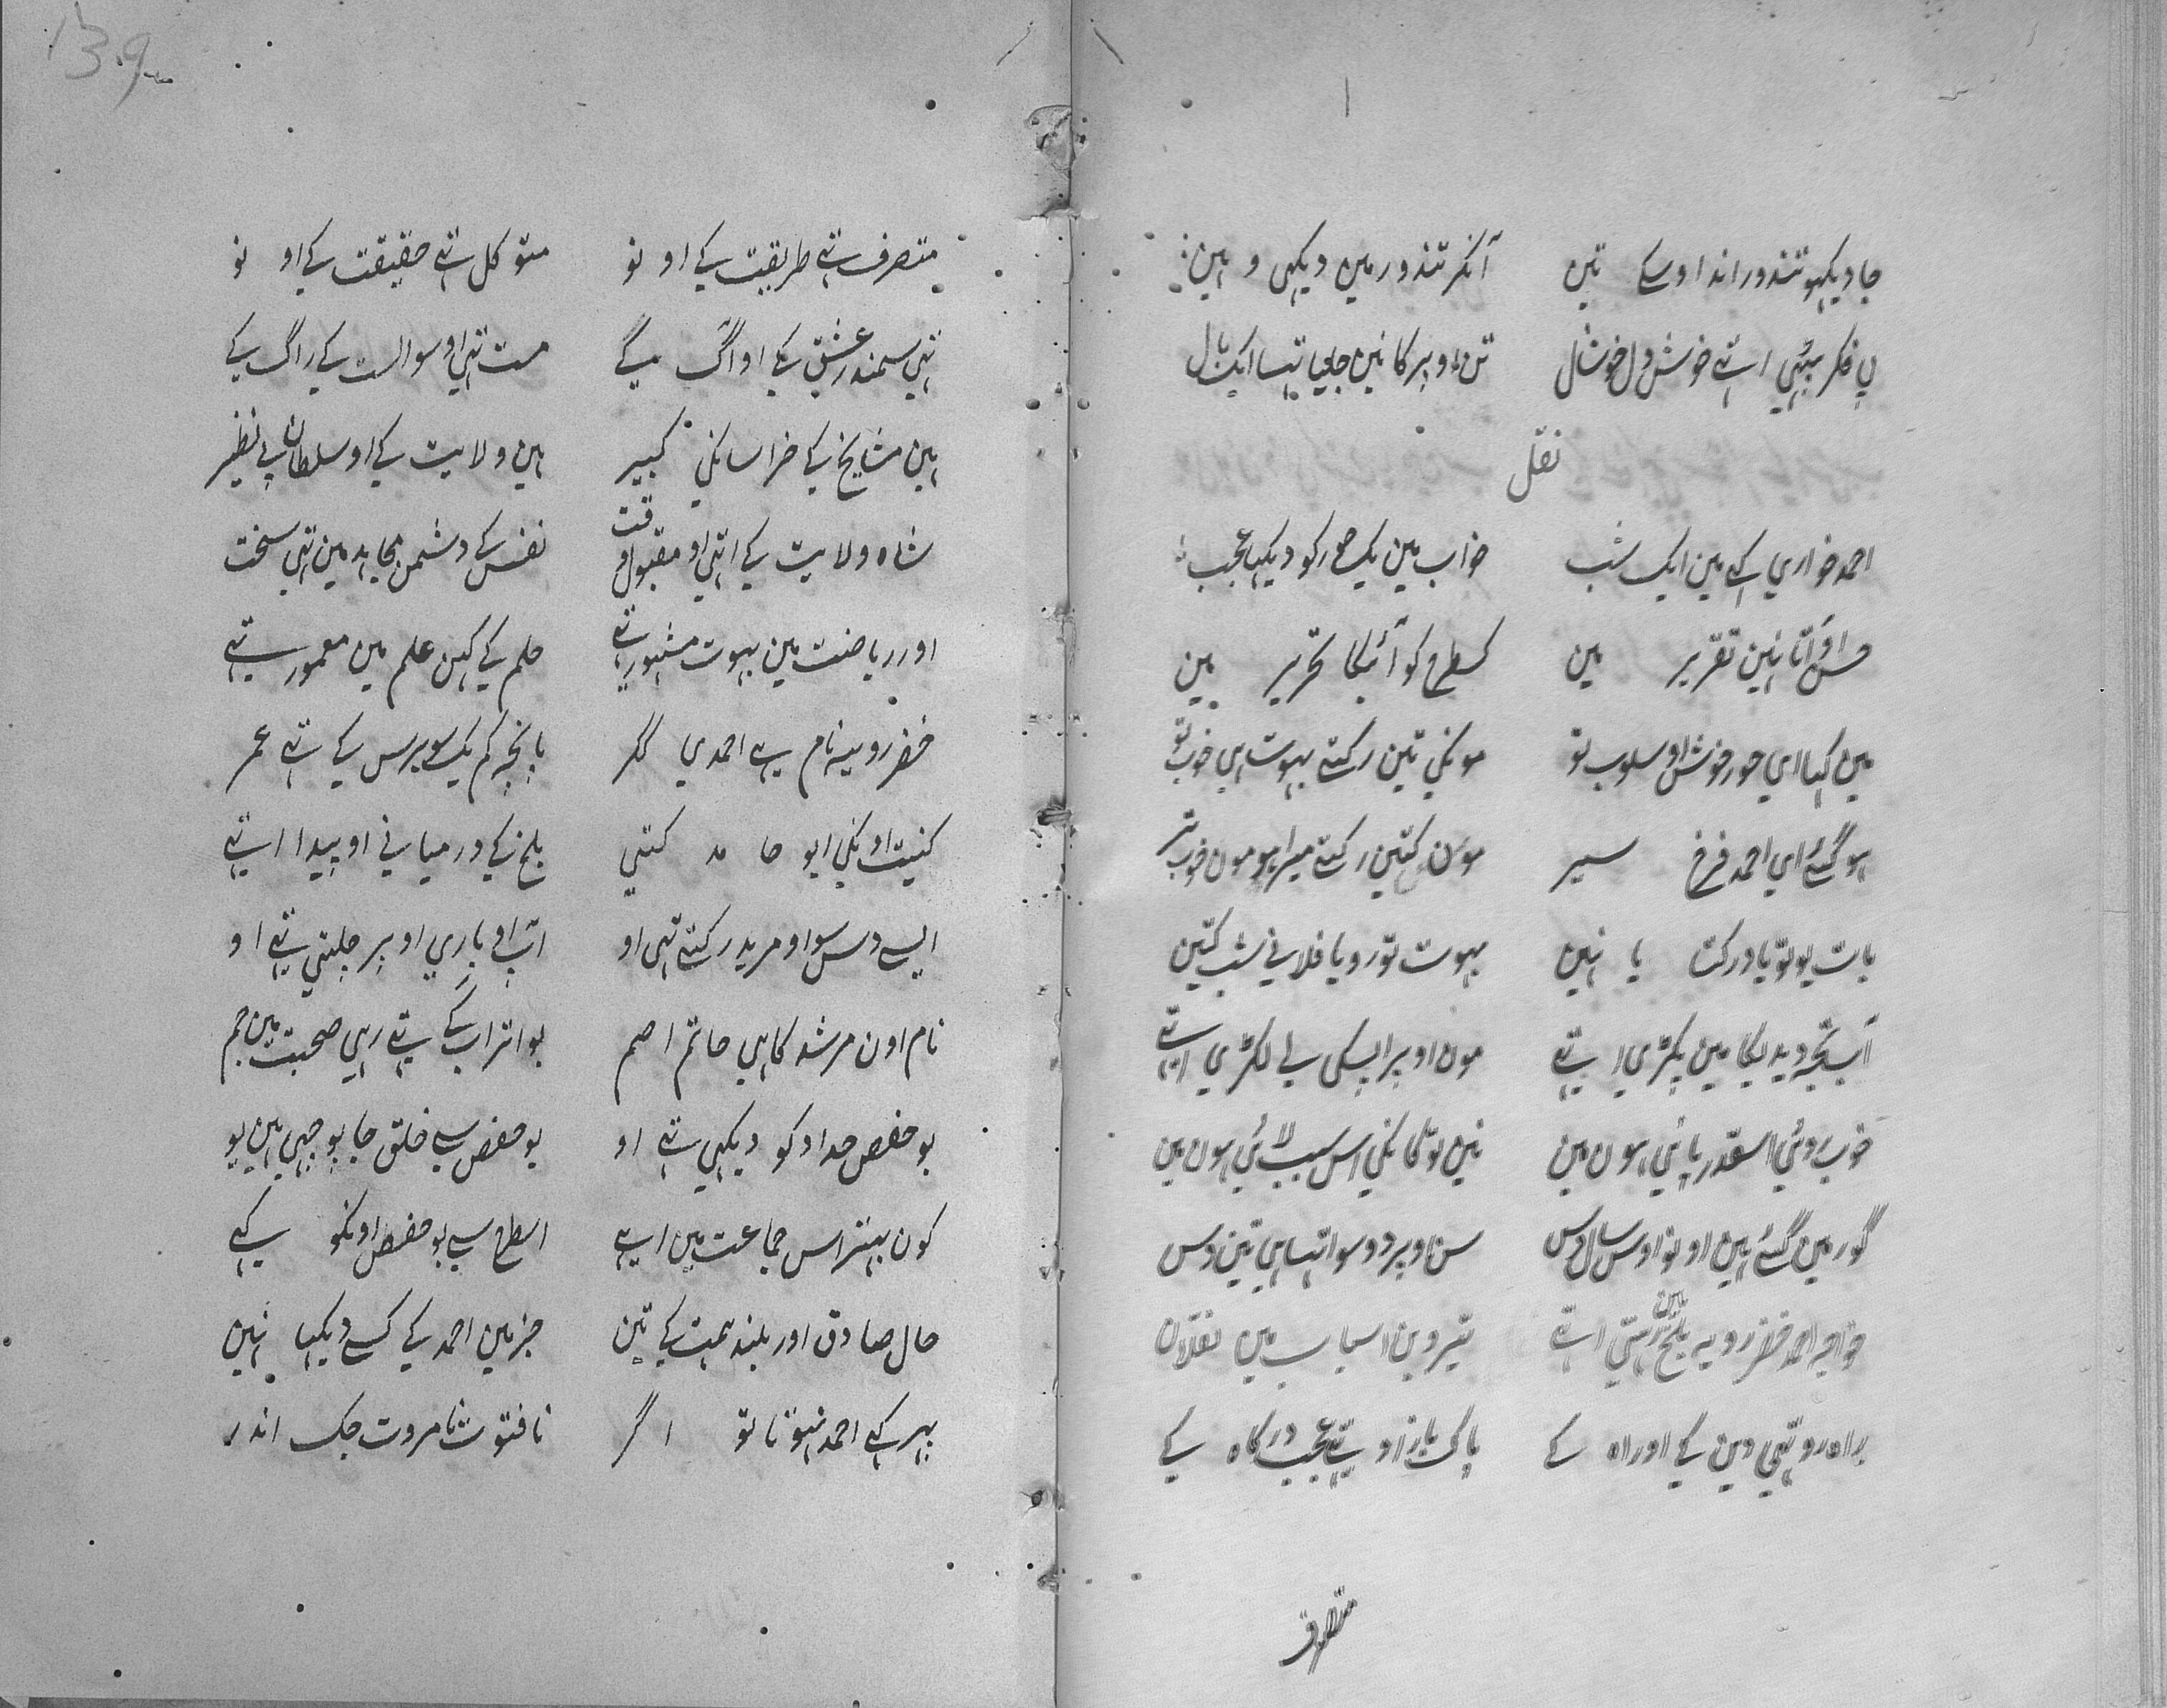 جا دیکھو تندور اندر اوسکے تین آنکر تندور مین دیکھی و ہین
بی فکر بیٹھی اتھے خوش دل خوشال تن اوپر کا نین جلیا تہا ایک بال
نقل
احمد خواری کہے مین ایک شب خواب مین یک حور کو دیکھا عجب
حسن او آتا نہین تقریر مین کسطرح کو آئیگا تحریر مین
مین کہا ای حور خوش اوسلوب تو مونکی تین رکہتے بہوت ہی خوب تو
ہو گئے ای احمد فرخ سیر مون کتین رکہتے میرا یو مون خوب تر
بات یو تو یاد رکت یا نہین بہوت تو رویا فلانی شب کتین
آب تجہ دیدیکا مین پکڑی اتھے مون اوپر اپسکی لے لکڑی اتھے
خوب روئی اسقدر پائی ہون مین
گور مین گئے ہین او نو اوس سال دس سن اوپر دو سو اتہا ہی تین دس
خواجہ احمد خضرویہ بلخ مین اتھے
راہ رو تھی دین کے اور راہ کے پاک باز او تھے عجب درگاہ کے
متصرف
139
متصرف تھے طریقت کے او نو متوکل تھے حقیقت کے او نو
تھی سمندر عشق کے او آگ کے مست تھی او سو الست کے راگ کے
ہین مشایخ کے خراسانکی کبیر ہین ولایت کے او سلطان بی نظیر
شاہ ولایت کے اتھی او مقبول وقت نفس کے دشمن مجاہد مین تھی سخت
اور ریاضت مین بہوت مشہور تھے حلم کے کہن علم مین معمور تھے
خضرویہ نام ہے احمدی گر پانچہ کم یک سو برس کے تھے عمر
کنیت اونکی ابو حامد کتھی بلخ کے درمیانی او پیدا اتھے
ایسے دس سو او مرید رکہتے تھی او آب او باری اوپر چلتی تھے او
نام اون مرشد کا ہی حاتم اصم بو اتراب کے تھے رہی صحبت مین جم
بو حفص حداد کو دیکھی تھے او بو حفص سے خلق جا پوچھی ہین یو
کون بہتر اس جماعت مین اہے اسطرح سے بو حفص اونکو کہے
حال صادق اور بلند ہمت کے تین جز مین احمد کے کسے دیکھا نہین
پہر کہے احمد نہوتا تو اگر نا فتوت نا مروت جگ اندر